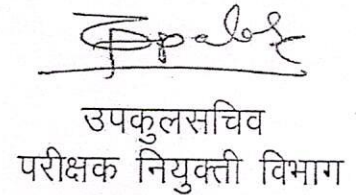 उपकुलसचिव
परीक्षक नियुक्ती विभाग